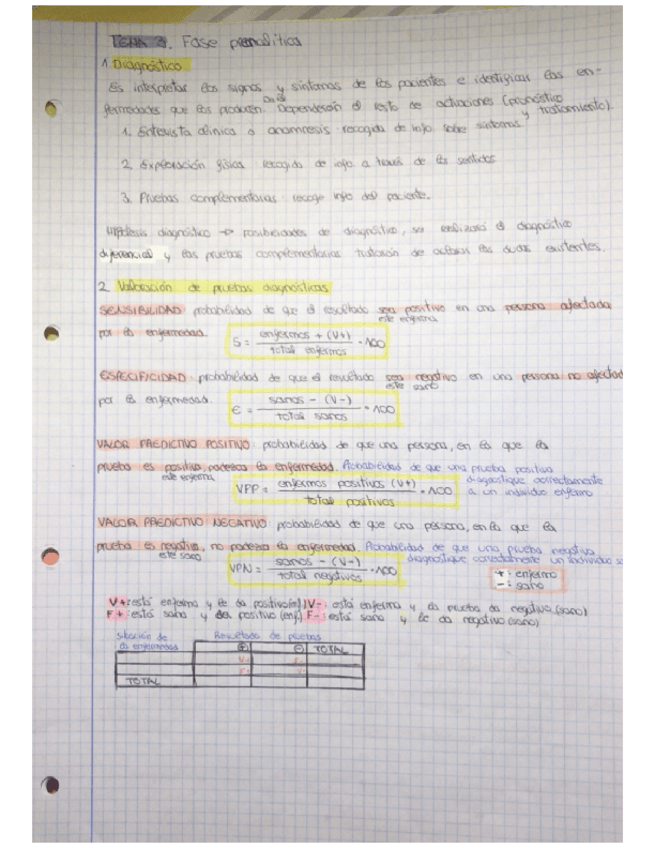 TEMA 3. Fase preanalítica
1. Diagnóstico
Es interpretar los signos y síntomas de los pacientes e identificar las en-
fermedades que los producen. De él Dependerán el resto de actuaciones (pronóstico y tratamiento).
1. Entrevista clínica o anamnesis: recogida de info. sobre síntomas
2. Exploración física: recogida de info a través de los sentidos
3. Pruebas complementarias: recoge info del paciente.
Hipótesis diagnóstico → posibilidades de diagnóstico, se realizará el diagnóstico
diferencial y las pruebas complementarias tratarán de aclarar las dudas existentes.
2. Valoración de pruebas diagnósticas
SENSIBILIDAD: probabilidad de que el resultado sea positivo en una persona afectada
esté enferma
por la enfermedad. S = enfermos + (V+) / total enfermos · 100
ESPECIFICIDAD: probabilidad de que el resultado sea negativo en una persona no afectad
esté sano
por la enfermedad. E = sanos - (V-) / total sanos · 100
VALOR PREDICTIVO POSITIVO: probabilidad de que una persona, en la que la
prueba es positiva, padezca la enfermedad. Probabilidad de que una prueba positiva
esté enferma diagnostique correctamente
VPP = enfermos positivos (V+) / total positivos · 100 a un individuo enfermo
VALOR PREDICTIVO NEGATIVO: probabilidad de que una persona, en la que la
prueba es negativa, no padezca la enfermedad. Probabilidad de que una prueba negativa
esté sano diagnostique correctamente un individuo s
VPN = sanos - (V-) / total negativos · 100
+: enfermo
-: sano
V+: está enferma y le da positivo (enf) V-: está enferma y la prueba da negativa (sano)
F+: está sano y da positivo (enf) F-: está sano y le da negativo (sano)
Situación de Resultado de pruebas
la enfermedad
+ - TOTAL
V+ F-
F+ V-
TOTAL